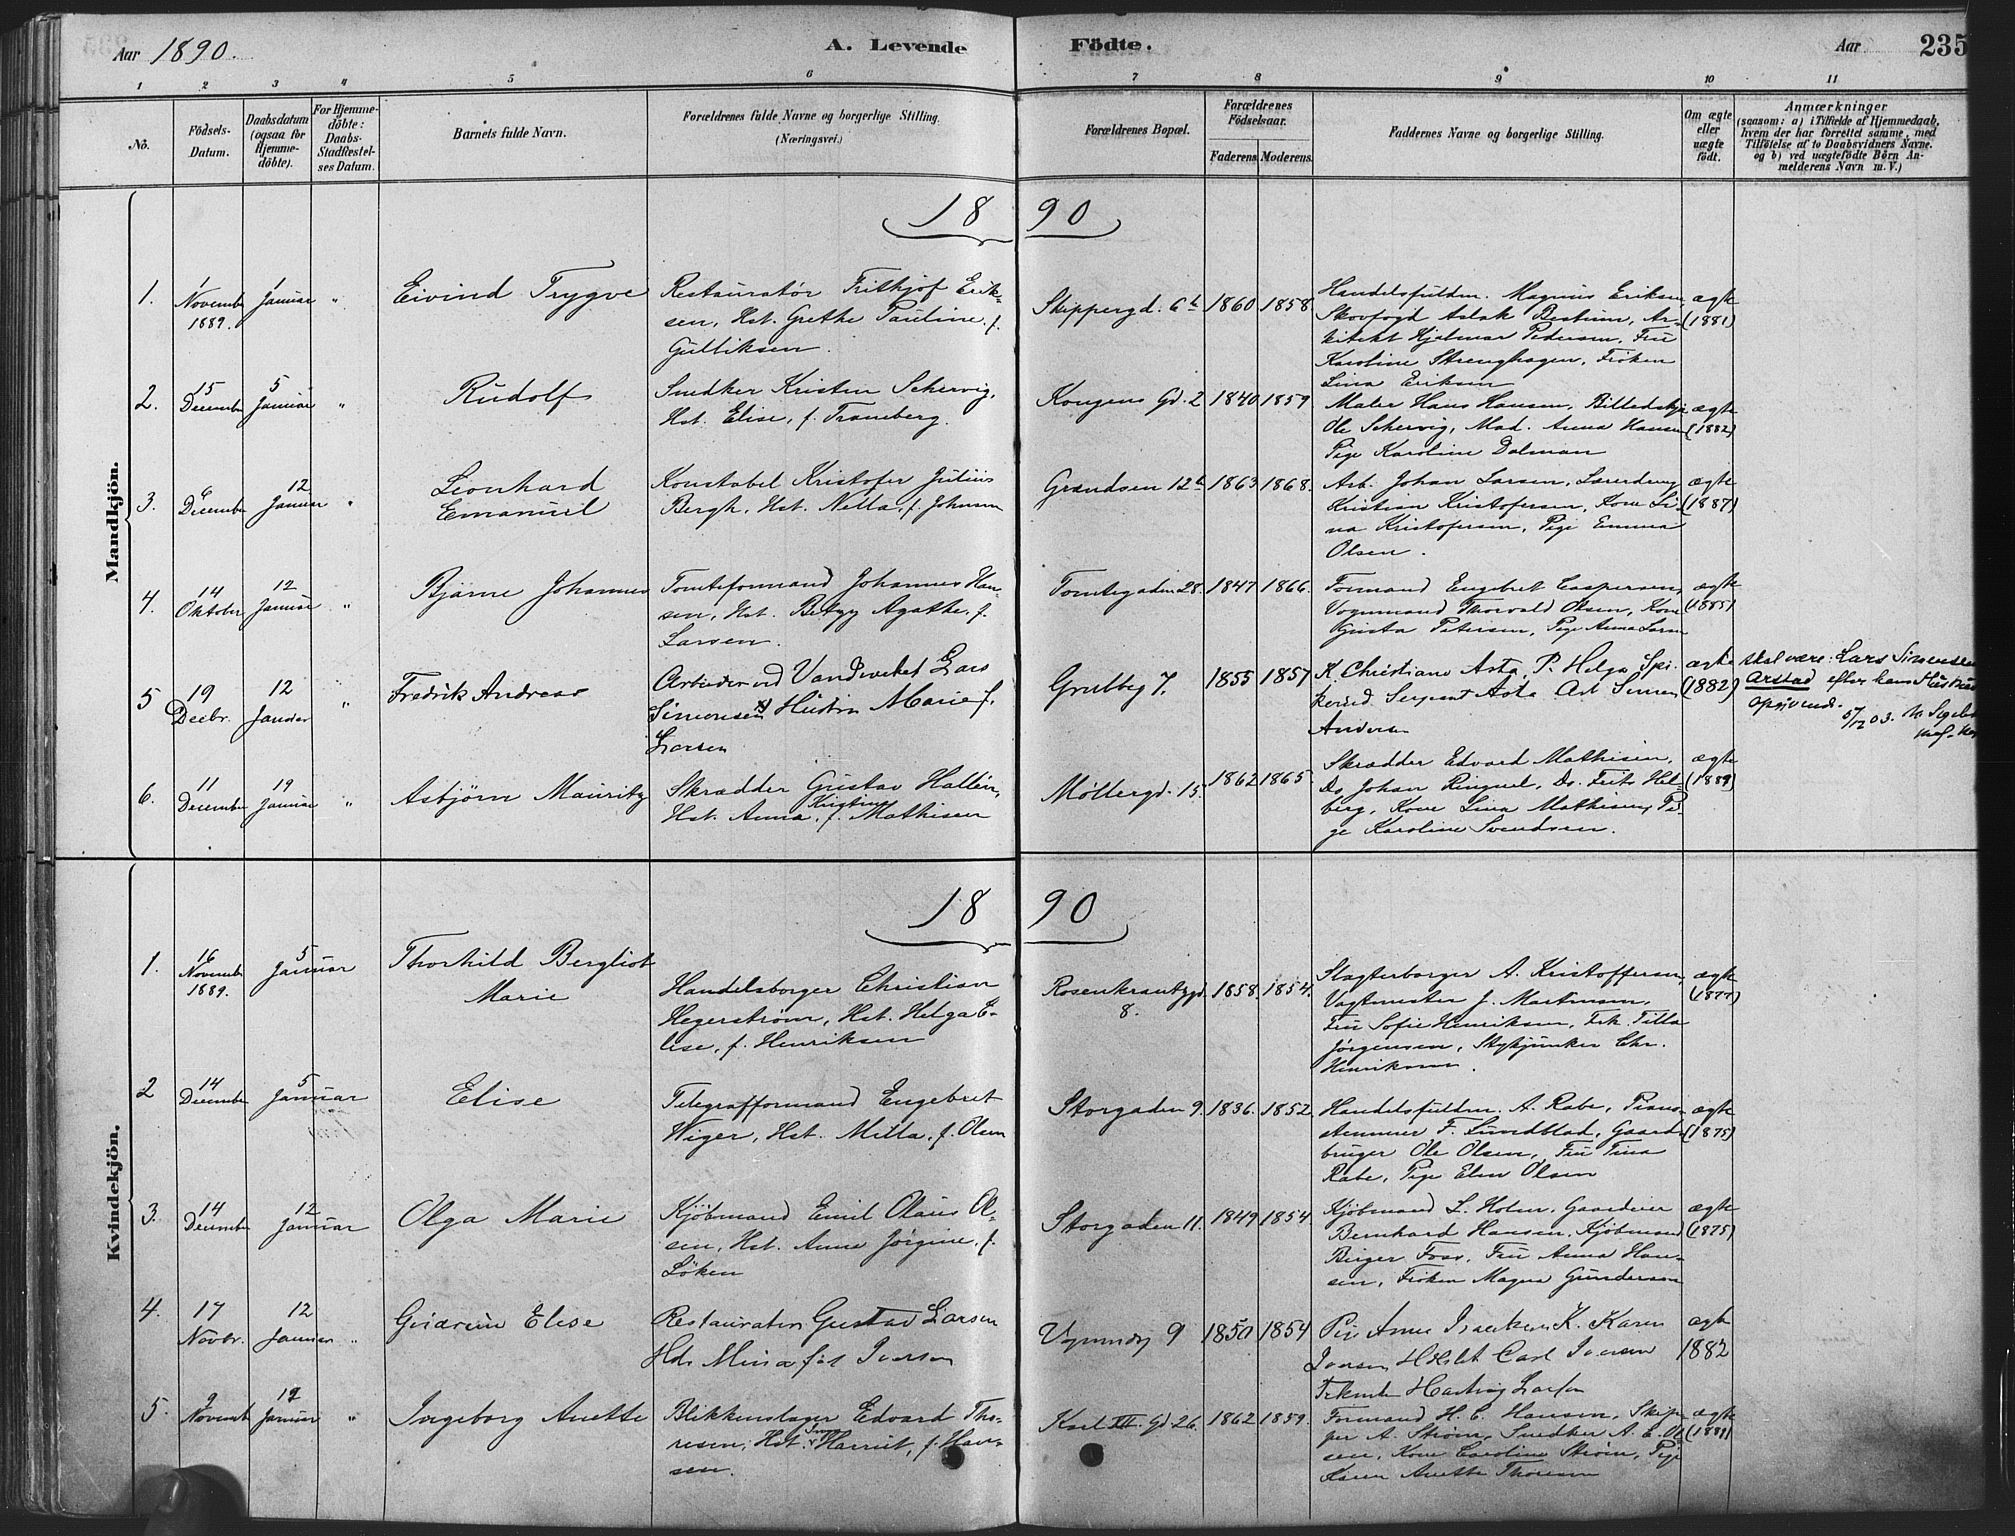 Aar 1890.
A. Levende Födte.
Aar
235
1 2 3 4 5 6 7 8 9 10 11
No.
Födsels-
Datum.
Daabsdatum
(ogsaa for
Hjemme-
döbte).
For Hjemme-
döbte:
Daabs-
Stadfæstel-
ses Datum.
Barnets fulde Navn.
Forældrenes fulde Navne og borgerlige Stilling.
(Næringsvei.)
Forældrenes Bopæl.
Forældrenes
Födselsaar.
Faderens.
Moderens.
Faddernes Navne og borgerlige Stilling.
Om ægte
eller
uægte
født.
Anmærkninger
(saasom: a) i Tilfælde af Hjemmedaab,
hvem der har forrettet samme, med
Tilföielse af to Daabsvidners Navne.
og b) ved uægtefödte Börn An-
melderens Navn m. V.)
Mandkjön.
1890
1.
1
November
1889.
1
Januar
"
Eivind Trygve
Restauratør Frithjof Erik-
sen, Hst. Grethe Pauline, f.
Gulliksen.
Skippergd. 6b
1860
1858.
Handelsfuldm. Magnus Eriksen,
Skovfogd Aslak Bestum, Ar-
kitekt Hjalmar Pedersen, Fru
Karoline Strenghagen, Frøken
Lina Eriksen
ægte
(1881)
2.
15
December
5
Januar
"
Rudolf
Snedker Kristen Schervig,
Hst. Elise, f. Tramberg.
Kongens Gd. 2
1840
1859
Maler Hans Hansen,
Ole Schervig, Mad. Anna Hansen
Pige Karoline Dalman
ægte
(1882)
3.
6
December
12
Januar
"
Leonhard
Emanuel
Konstabel Kristofer Julius
Bergh, Hst. Netta, f. Johnsen
Grændsen 12b
1863
1868.
Arb. Johan Larsen,
Kristian Kristofersen, Kone Li-
na Kristofersen, Pige Emma
Olsen.
ægte
(1887)
4.
14
Oktober
12
Januar
"
Bjarne Johannes
Tomteformand Johannes Han-
sen, Hst. Betzy Agathe, f.
Larsen.
Tomtegaden 28.
1847
1866.
Formand Engebret Caspersen,
Vognmand Thorvald Olsen, Kone
Petersen, Pige Anna Larsen
ægte
(1885)
5
19
Decbr.
12
Januar
"
Fredrik Andreas
Arbeider ved Vandverket Lars
Simonsen Hustru Marie f.
Larsen
Grubbeg 7.
1855
1857
K. Christiane Asta, P. Helga
Sergeant Asta Arb Simen
Andersen
ægte
(1882)
skal være: Lars Simensen
Arstad efter hans Hustrus
opgivende.
5/12 03.
6.
11
December
19
Januar
"
Asbjørn Mauritz
Skrædder Gustav Hallén,
Hst. Anna Kristine, f. Mathisen
Møllergd. 15.
1862
1865.
Skrædder Edvard Mathisen,
Do Johan Ringnel, Do. Frits Hel-
berg, Kone Lina Mathisen, Pi-
ge Karoline Svendsen.
ægte
(1889)
Kvindekjön.
1890
1.
16
Novemb
1889.
5
Januar
Thorhild Bergliot
Marie
Handelsborger Christian
Hegerstrøm, Hst. Helga E-
lise, f. Henriksen
Rosenkrantzgd.
8.
1858.
1854.
Slagterborger A. Kristoffersen,
Vagtmester J. Martinsen,
Fru Sofie Henriksen, Frk. Tilla
Jørgensen, Stykjunker Chr.
Henriksen.
ægte
(1877)
2
14
December
5
Januar
Elise
Telegrafformand Engebret
Wiger, Hst. Milla, f. Olsen
Storgaden 9.
1836.
1852.
Handelsfuldm. A. Rabe, Piano-
stemmer F. Lundblad, Gaard-
bruger Ole Olsen, Fru Tina
Rabe, Pige Elen Olsen
ægte
(1875)
3.
14
December
12
Januar
Olga Marie
Kjøbmand Emil Olaus Ol-
sen, Hst. Anna Jørgine, f.
Løken
Storgaden 11.
1849
1854.
Kjøbmand L. Holm, Gaardeier
Bernhard Hansen, Kjøbmand
Birger Foss, Fru Anna Han-
sen, Frøken Magna Gundersen
ægte
(1875)
4.
17
Novbr.
12
Januar
"
Gudrun Elise
Restauratør Gustav Larsen
Hst. Mina født Iversen
9
1850
1854
Pige Anna K. Karen
Iversen Carl Iversen
Larsen
ægte
1882
5.
9
Novemb
12
Januar
"
Ingeborg Anette
Blikkenslager Edvard Tho-
resen, Hst. Harriet, f. Han-
sen.
Karl XII. Gd. 26.
1862
1859.
Formand H. C. Hansen, Skip-
per A. Strøm, Snedker A. E. Ol-
sen, Kone Caroline Strøm, Pige
Karen Anette Thoresen
ægte
(1889)